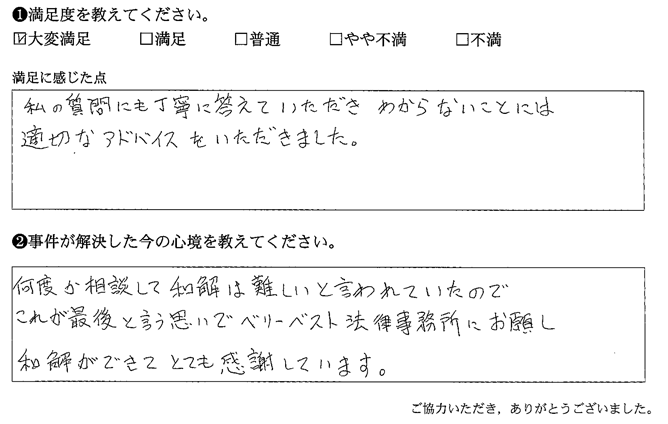 ❶満足度を教えてください。
☑大変満足 □満足 □普通 □やや不満 □不満
満足に感じた点
私の質問にも丁寧に答えていただき わからないことには
適切なアドバイスをいただきました。
❷事件が解決した今の心境を教えてください。
何度か相談して和解は難しいと言われていたので
これが最後と言う思いでベリーベスト法律事務所にお願し
和解ができてとても感謝しています。
ご協力いただき，ありがとうございました。